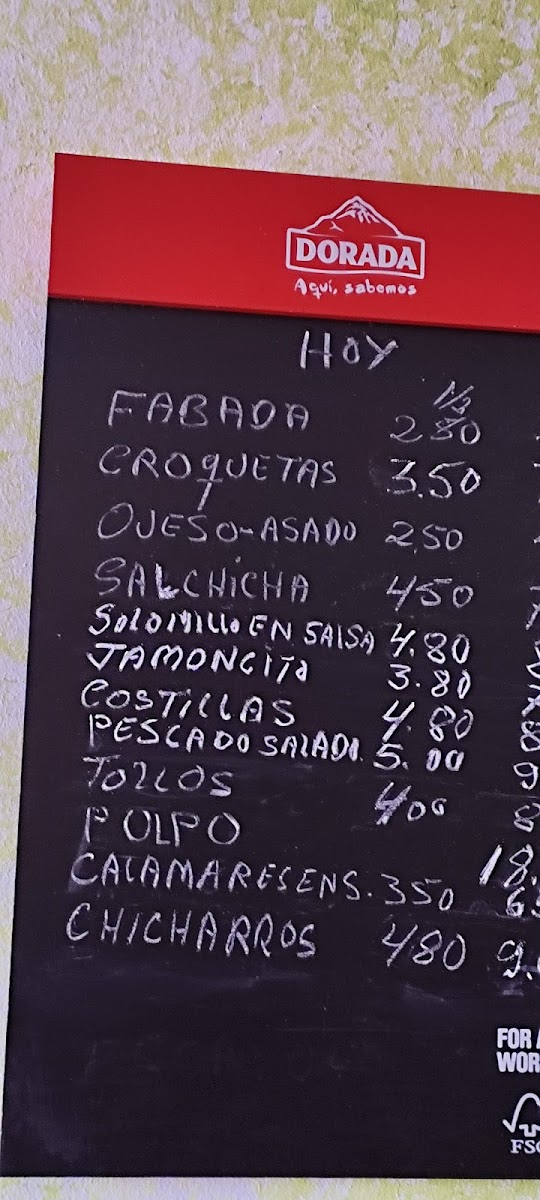 DORADA
Aquí, sabemos
HOY
1/2
FABADA 2 80
CROQUETAS 3.50
QUESO-ASADO 2.50
SALCHICHA 450
SOLOMILLO EN SALSA 4.80
JAMONCITO 3.80
COSTILLAS 4.80
PESCADO SALADO. 5.00 9
TOLLOS 400 8
POLPO 18.
CALAMARES ENS. 350 6
CHICHARROS 480 9.
FOR
WOR
FSC